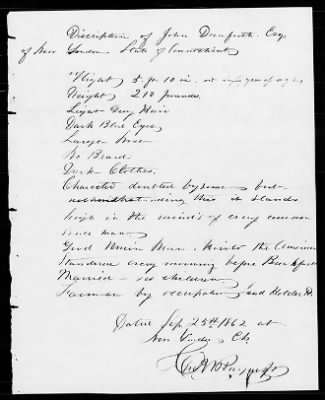 Discription of John Danforth Esq.
of New London State of Connecticut
Hight 5. ft 10 in.
Weight 210 pounds.
Light Gray Hair
Dark Blue Eyes
Large Nose
No Beard
Dark Clothes.
Charecter doubted by some but
not this it stands
high in the minds of every common
sence man
Good Union Man. the American
Standard every morning before Breakfast
Married - no children
Farmer by occupation and
Dated Sep. 25th 1862 at
New London Ct.